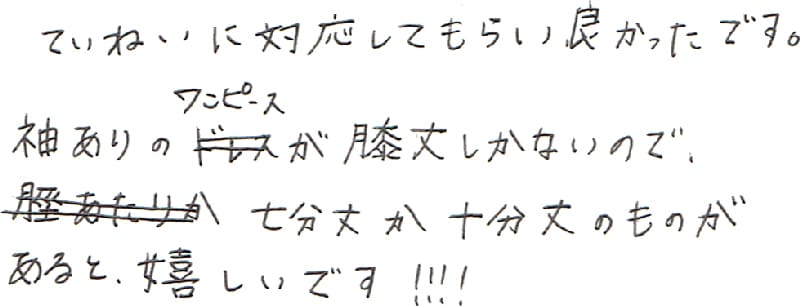 ていねいに対応してもらい良かったです。
ワンピース
袖ありのドレスが膝丈しかないので、
脛あたりか 七分丈か十分丈のものが
あると、嬉しいです!!!!